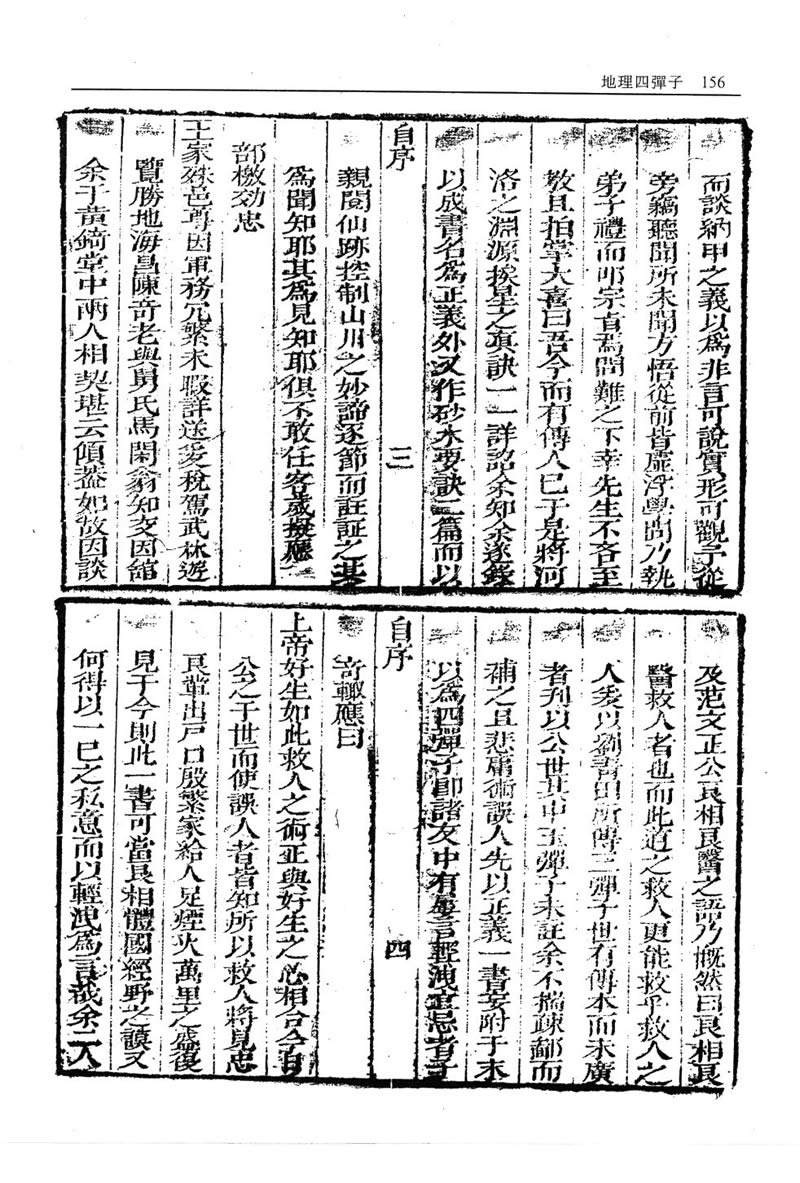 地理四彈子 156
而談納甲之義以為非言可說實形可觀予從
旁竊聽聞所未聞方悟從前皆虛浮學問乃執
弟子禮而叩宗旨焉問難之下幸先生不吝至
教且拍掌大喜曰吾今而有傳人已于是將河
洛之淵源挨星之真訣一一詳詔余知余遂錄
以成書名為正義外又作砂水要訣二篇而以
自序 三
親閱仙跡控制山川之妙諦逐節而註証之其
為聞知耶其為見知耶俱不敢任客歲擬應
部檄効忠
王家殊邑尊因軍務冗繁未暇詳送爰稅駕武林遊
覽勝地海昌陳竒老與舅氏馬閑翁知交因舘
余于黃錡堂中兩人相契堪云傾葢如故因談
及范文正公良相良醫之語乃慨然曰良相良
醫救人者也而此道之救人更能救乎救人之
人爰以劉青田所傳三彈子世有傳本而未廣
者刋以公世其中玉彈子未註余不揣疎鄙而
補之且悲庸術誤人先以正義一書妄附于末
以為四彈子卽諸友中有
自序 四
竒輙應曰
上帝好生如此救人之術正與好生之心相合今日
公之于世而使誤人者皆知所以救人將見忠
良輩出戸口殷繁家給人足煙火萬里之盛復
見于今則此一書可當良相體國經野之謨又
何得以一已之私意而以輕洩為言哉余二人